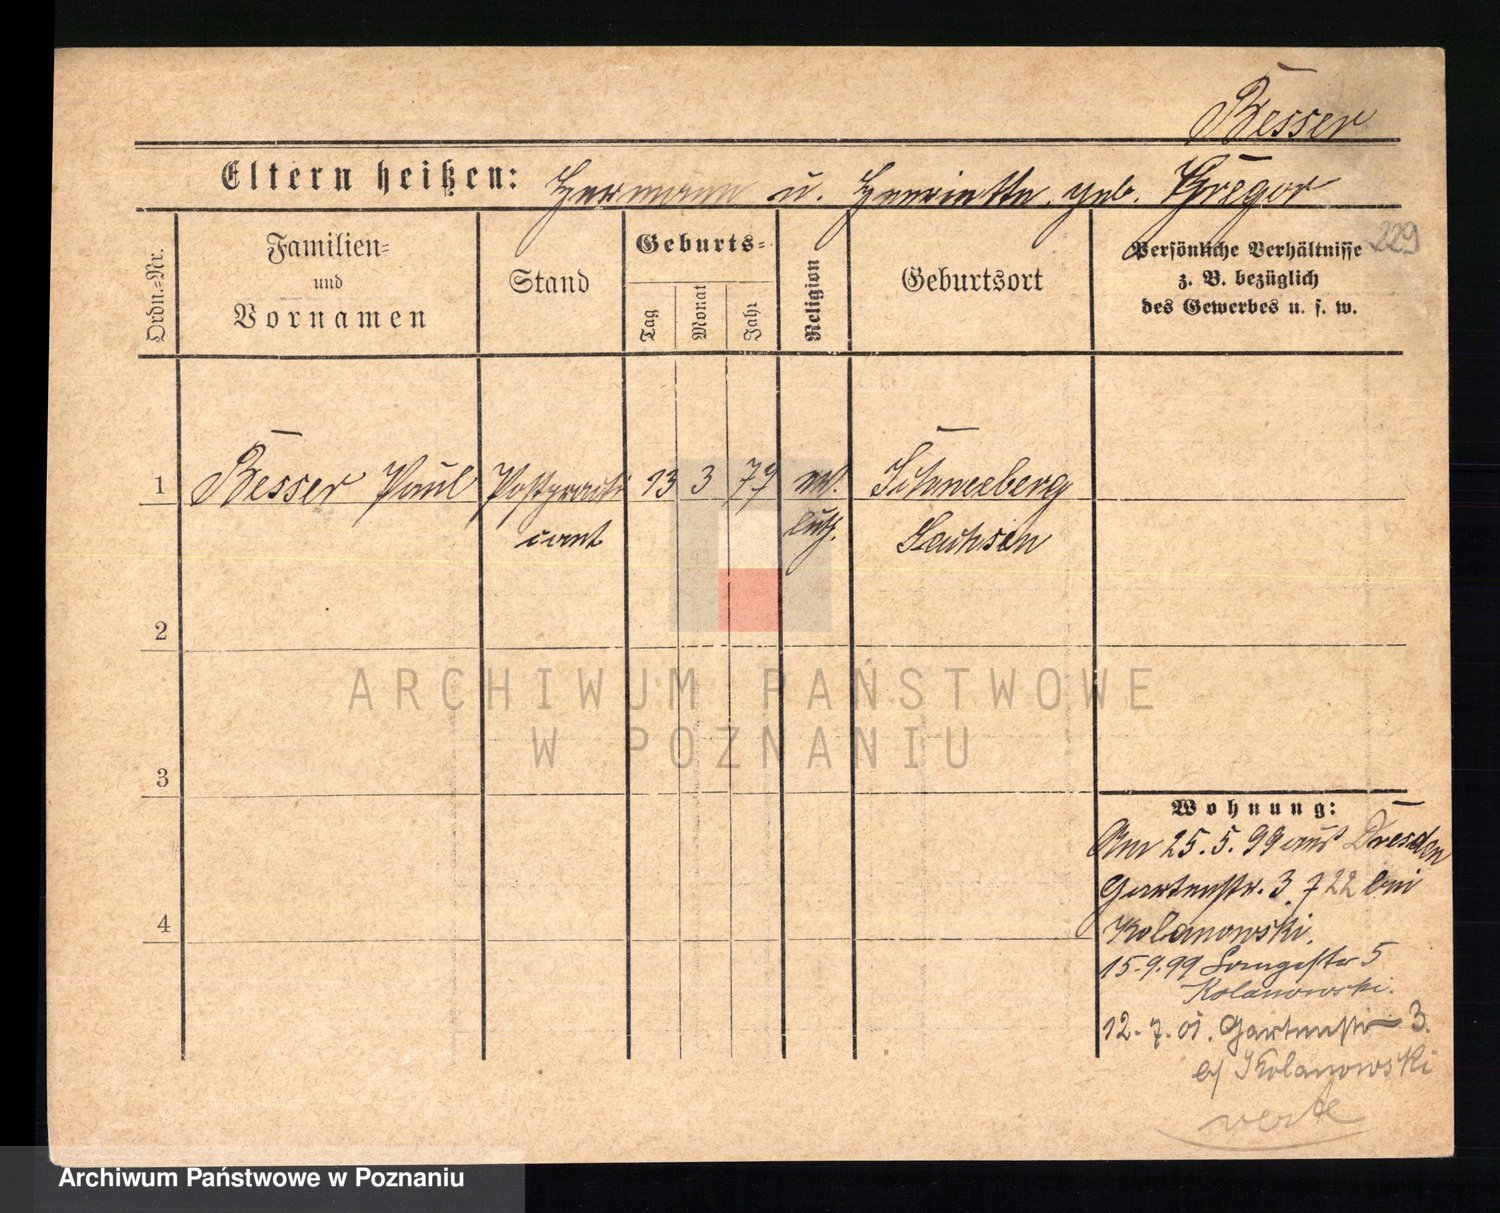 Besser
Eltern heißen: Hermann u. Henriette geb. Gregor
229
Ordn.=Nr.
Familien=
und
Vornamen
Stand
Geburts=
Tag
Monat
Jahr
Religion
Geburtsort
Persönliche Verhältnisse
z. B. bezüglich
des Gewerbes u. s. w.
1 Besser Paul Postprakti 13 3 77 ev. Schneeberg
cant luth. Sachsen
2
3
4
Wohnung:
Am 25.5.99 aus Dresden
Gartenstr. 3 722 bei
Kolanowski.
15.9.99 Langestr 5
Kolanowski.
12.7.01. Gartenstr 3.
b/ Kolanowski
verte
ARCHIWUM PAŃSTWOWE
W POZNANIU
Archiwum Państwowe w Poznaniu